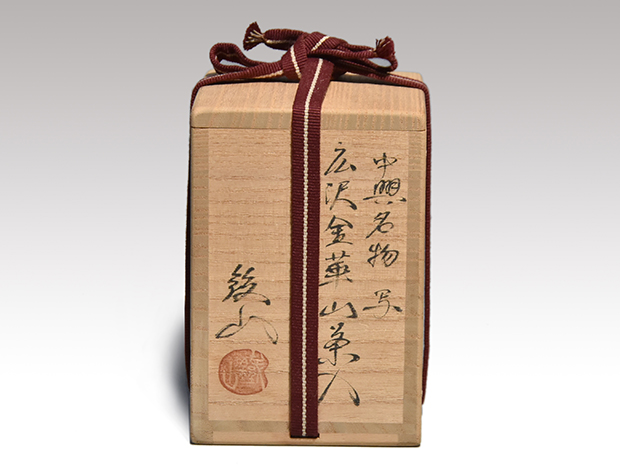 中興名物 写
広沢金華山茶入